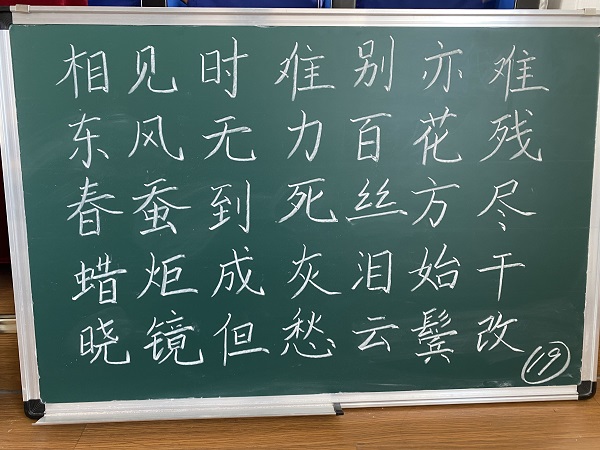 相见时难别亦难
东风无力百花残
春蚕到死丝方尽
蜡炬成灰泪始干
晓镜但愁云鬓改
19